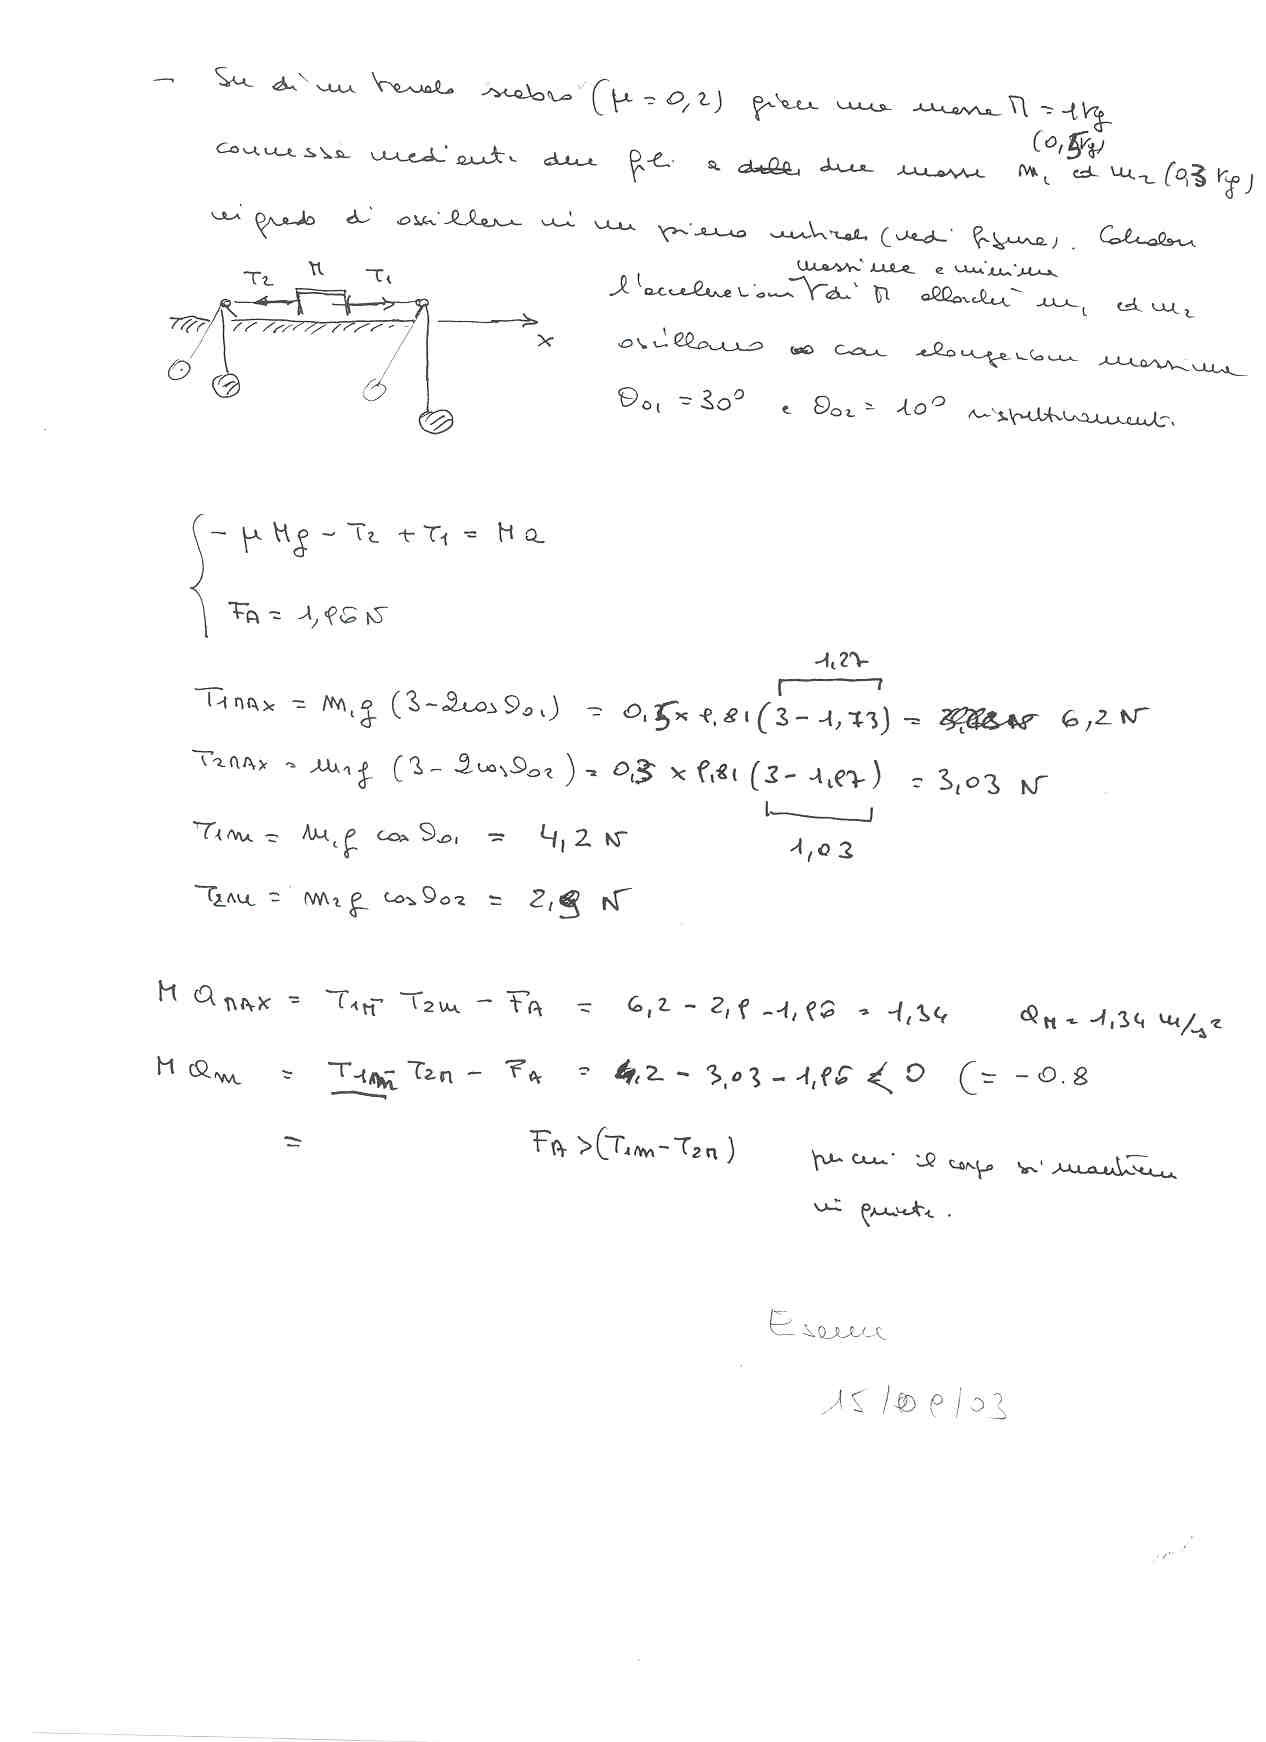 - Su di un tavolo scabro (μ = 0,2) giace una massa M = 1 kg
(0,5 kg)
connessa mediante due fili a due masse m1 ed m2 (0,3 kg)
in grado di oscillare in un piano verticale (vedi figura). Calcolare
massima e minima
l'accelerazione di M allorché m1 ed m2
oscillano con elongazione massima
θ01 = 30° e θ02 = 10° rispettivamente.
T2 M T1
x
- μMg - T2 + T1 = Ma
FA = 1,96 N
1,27
T1MAX = m1g (3-2cosθ01) = 0,5 × 9,81 (3 - 1,73) = 6,2 N
T2MAX = m2g (3 - 2cosθ02) = 0,3 × 9,81 (3 - 1,97) = 3,03 N
1,03
T1m = m1g cosθ01 = 4,2 N
T2m = m2g cosθ02 = 2,9 N
M aMAX = T1M - T2m - FA = 6,2 - 2,9 - 1,96 = 1,34 aM = 1,34 m/s2
M am = T1m - T2M - FA = 4,2 - 3,03 - 1,96 < 0 (= -0.8
= FA > (T1m - T2M) per cui il corpo si mantiene
in quiete.
Esame
15/09/03